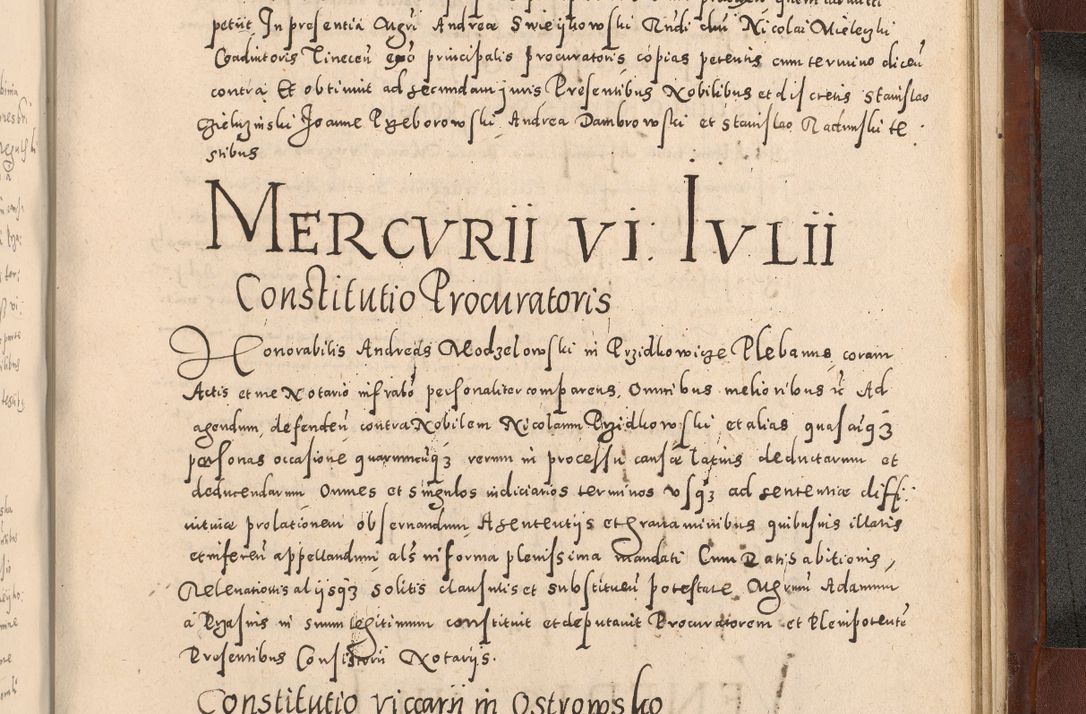 petiit In presentia Mgri Andreæ Swieijkowski Nndi dni Nicolai Mieleczki
Coadiutoris Tinecen̄ ex͞o principalis procuratoris copias petentis cum termino dicen̄
contra Et obtinuit ad secundam juris Presentibus Nobilibus et discretis Stanislao
Zieluzinski Joanne Przeborowski Andrea Dambrowski et Stanislao Raczinski te
stibus
MERCVRII VI. IVLII
Constitutio Procuratoris
Honorabilis Andreas Modzelowski in Przidkowicze Plebanus coram
Actis et me Notario infrabō personaliter comparens, Omnibus melioribus &c Ad
agendum, defenden̄ contra Nobilem Nicolaum Przidkowski et alias quasuiq3
personas occasione quarumcūq3 rerum in processu causæ latius deductarum et
deducendarum Omnes et singulos iudiciarios terminos vsq3 ad sententiæ diffi:
nitiuæ prolationem obseruandum A sententijs et grauaminibus quibusuis illatis
et inferen̄ appellandum als̄ in forma plenissima mandati Cum Ratis abitionis,
Releuationis alijsq3 solitis clausulis et substituen̄ potestate Mgrum Adamum
à Pyasnis in suum legitimum constituit et deputauit Procuratorem et Plenipotentē
Presentibus Consistorii Notarijs.
Constitutio viccarii in Ostrowsko